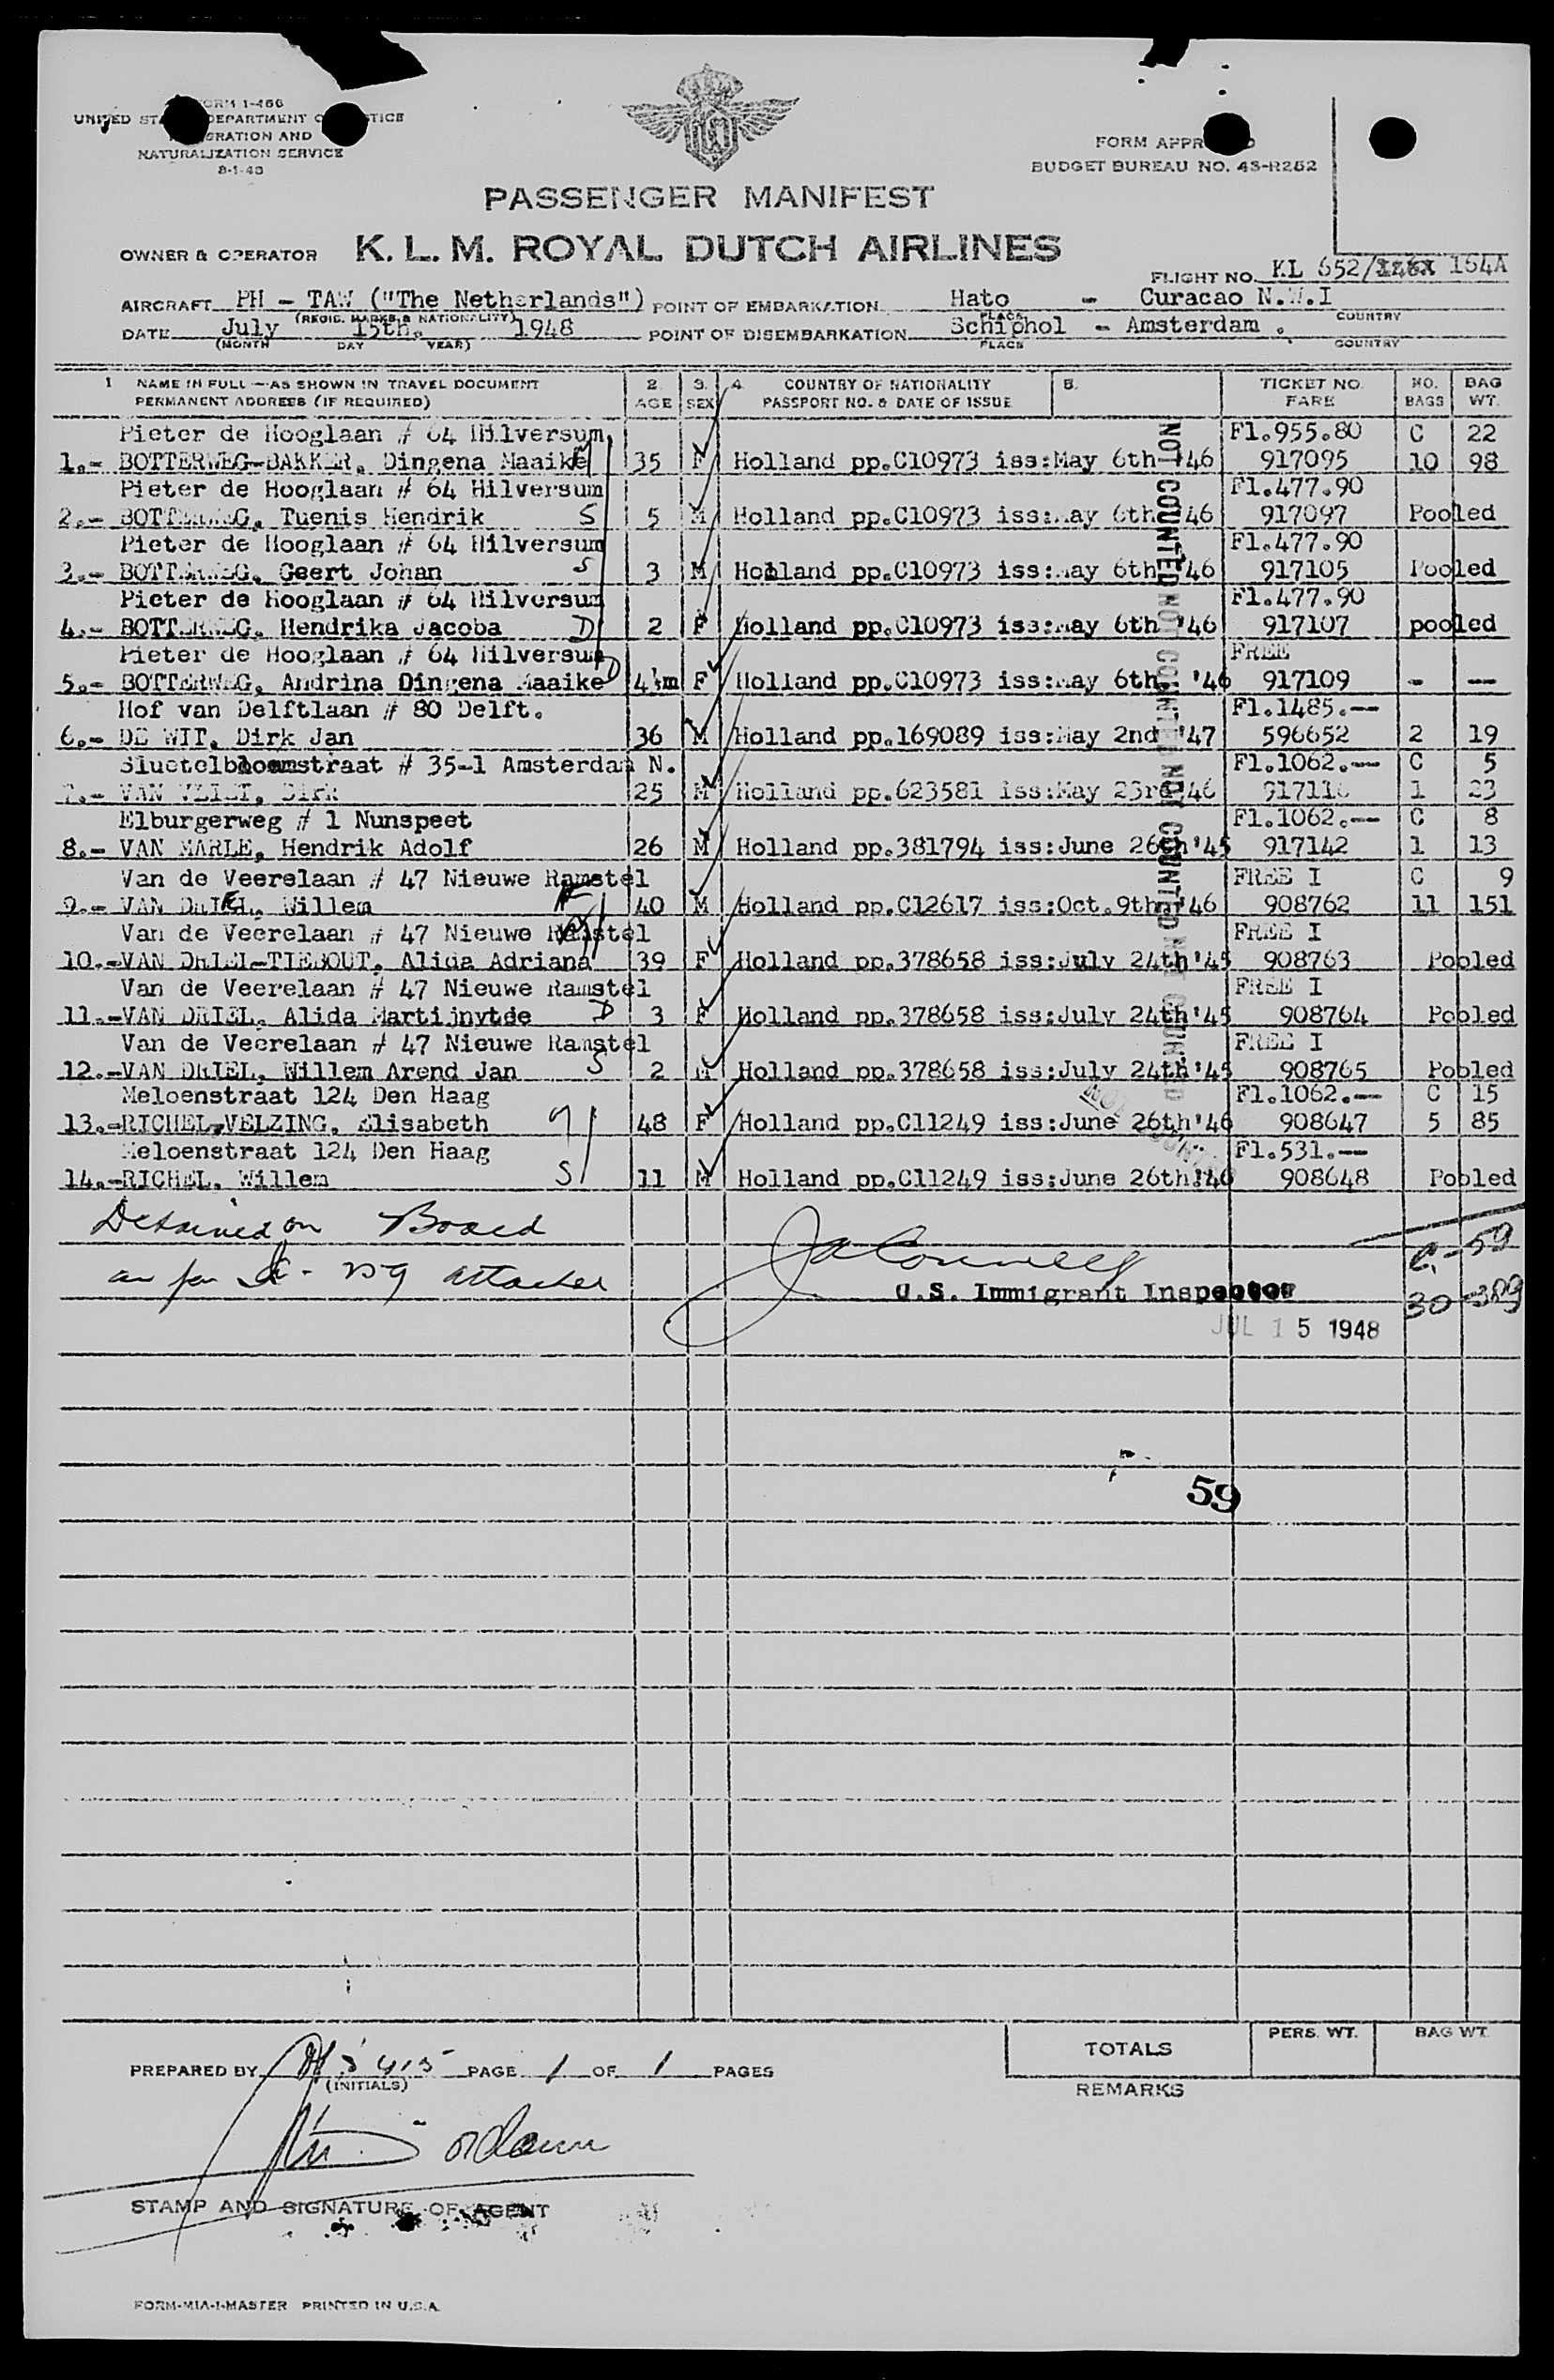 FORM 1-466
UNITED STATES DEPARTMENT OF JUSTICE
IMMIGRATION AND
NATURALIZATION SERVICE
FORM APPROVED
BUDGET BUREAU NO. 43-R252
PASSENGER MANIFEST
OWNER & OPERATOR K.L.M. ROYAL DUTCH AIRLINES
FLIGHT NO. KL 652/ 154A
AIRCRAFT PH - TAW ("The Netherlands") POINT OF EMBARKATION Hato - Curacao N.W.I
(REGIS. MARKS & NATIONALITY) PLACE COUNTRY
DATE July 15th. 1948 POINT OF DISEMBARKATION Schiphol - Amsterdam .
(MONTH DAY YEAR) PLACE COUNTRY
1 NAME IN FULL — AS SHOWN IN TRAVEL DOCUMENT 2. 3. 4. COUNTRY OF NATIONALITY 5. TICKET NO. NO. BAG
PERMANENT ADDRESS (IF REQUIRED) AGE SEX PASSPORT NO. & DATE OF ISSUE FARE BAGS WT.
Pieter de Hooglaan # 64 Hilversum Fl.955.80 C 22
1.- BOTTERWEG-BAKKER, Dingena Maaike 35 F Holland pp.C10973 iss:May 6th '46 917095 10 98
Pieter de Hooglaan # 64 Hilversum Fl.477.90
2.- BOTTERWEG, Tuenis Hendrik S 5 M Holland pp.C10973 iss:May 6th '46 917097 Pooled
Pieter de Hooglaan # 64 Hilversum Fl.477.90
3.- BOTTERWEG, Geert Johan S 3 M Holland pp.C10973 iss:May 6th '46 917105 Pooled
Pieter de Hooglaan # 64 Hilversum Fl.477.90
4.- BOTTERWEG, Hendrika Jacoba D 2 F Holland pp.C10973 iss:May 6th '46 917107 pooled
Pieter de Hooglaan # 64 Hilversum FREE
5.- BOTTERWEG, Andrina Dingena Maaike D 4½m F Holland pp.C10973 iss:May 6th '46 917109 - --
Hof van Delftlaan # 80 Delft. Fl.1485.--
6.- DE WIT, Dirk Jan 36 M Holland pp.169089 iss:May 2nd '47 596652 2 19
Sluetelbloemstraat # 35-1 Amsterdam N. Fl.1062.-- C 5
7.- VAN VLIET, DIRK 25 M Holland pp.623581 iss:May 23rd '46 1 23
Elburgerweg # 1 Nunspeet Fl.1062.-- C 8
8.- VAN MARLE, Hendrik Adolf 26 M Holland pp.381794 iss:June 26th '45 917142 1 13
Van de Veerelaan # 47 Nieuwe Ramstel FREE I C 9
9.- VAN DRIEL, Willem 40 M Holland pp.C12617 iss:Oct.9th '46 908762 11 151
Van de Veerelaan # 47 Nieuwe Ramstel FREE I
10.-VAN DRIEL-TIEBOUT, Alida Adriana 39 F Holland pp.378658 iss:July 24th '45 908763 Pooled
Van de Veerelaan # 47 Nieuwe Ramstel FREE I
11.-VAN DRIEL, Alida Martijnytde D 3 F Holland pp.378658 iss:July 24th '45 908764 Pooled
Van de Veerelaan # 47 Nieuwe Ramstel FREE I
12.-VAN DRIEL, Willem Arend Jan S 2 M Holland pp.378658 iss:July 24th '45 908765 Pooled
Meloenstraat 124 Den Haag Fl.1062.-- C 15
13.-RICHEL-VELZING, Elisabeth 48 F Holland pp.C11249 iss:June 26th '46 908647 5 85
Meloenstraat 124 Den Haag Fl.531.--
14.-RICHEL, Willem S 11 M Holland pp.C11249 iss:June 26th '46 908648 Pooled
NOT COUNTED NOT COUNTED NOT COUNTED NOT COUNTED
NOT COUNTED
Detained on Board C - 59
as per I - 259 attached
U.S. Immigrant Inspector 30 - 389
JUL 15 1948
59
TOTALS PERS. WT. BAG WT.
PREPARED BY PAGE 1 OF 1 PAGES
(INITIALS)
REMARKS
STAMP AND SIGNATURE OF AGENT
FORM-MIA-1-MASTER PRINTED IN U.S.A.